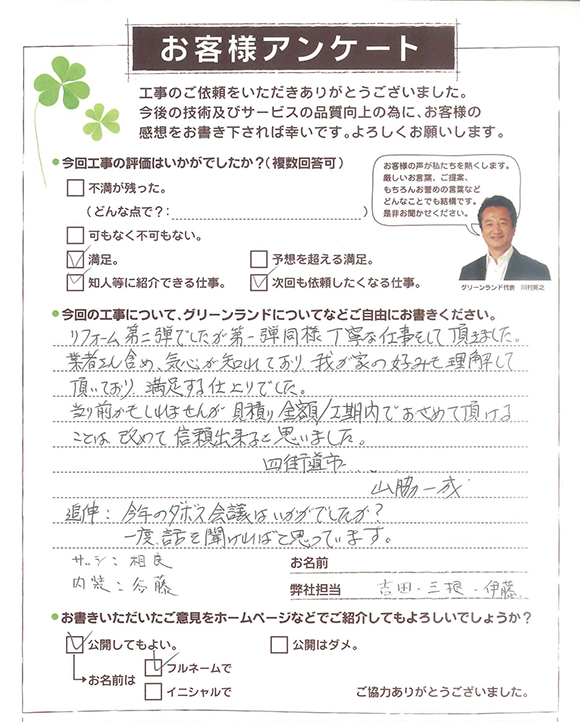 お客様アンケート
工事のご依頼をいただきありがとうございました。
今後の技術及びサービスの品質向上の為に、お客様の
感想をお書き下されば幸いです。よろしくお願いします。
今回工事の評価はいかがでしたか？（複数回答可）
不満が残った。
（どんな点で？：　）
可もなく不可もない。
満足。　予想を超える満足。
知人等に紹介できる仕事。　次回も依頼したくなる仕事。
お客様の声が私たちを熱くします。
厳しいお言葉、ご提案、
もちろんお誉めの言葉など
どんなことでも結構です。
是非お聞かせください。
グリーンランド代表　川村英之
今回の工事について、グリーンランドについてなどご自由にお書きください。
リフォーム第二弾でしたが第一弾同様丁寧な仕事をして頂きました。
業者さん含め、気心が知れており、我が家の好みを理解して
頂いており、満足する仕上りでした。
当り前かもしれませんが見積り金額/工期内でおさめて頂ける
ことは改めて信頼出来ると思いました。
四街道市
山脇一成
追伸：今年のダボス会議はいかがでしたか？
一度、話を聞ければと思っています。
サッシ：相良
内装：谷藤
お名前
弊社担当　吉田・三根・伊藤
お書きいただいたご意見をホームページなどでご紹介してもよろしいでしょうか？
公開してもよい。　公開はダメ。
お名前は　フルネームで
イニシャルで
ご協力ありがとうございました。